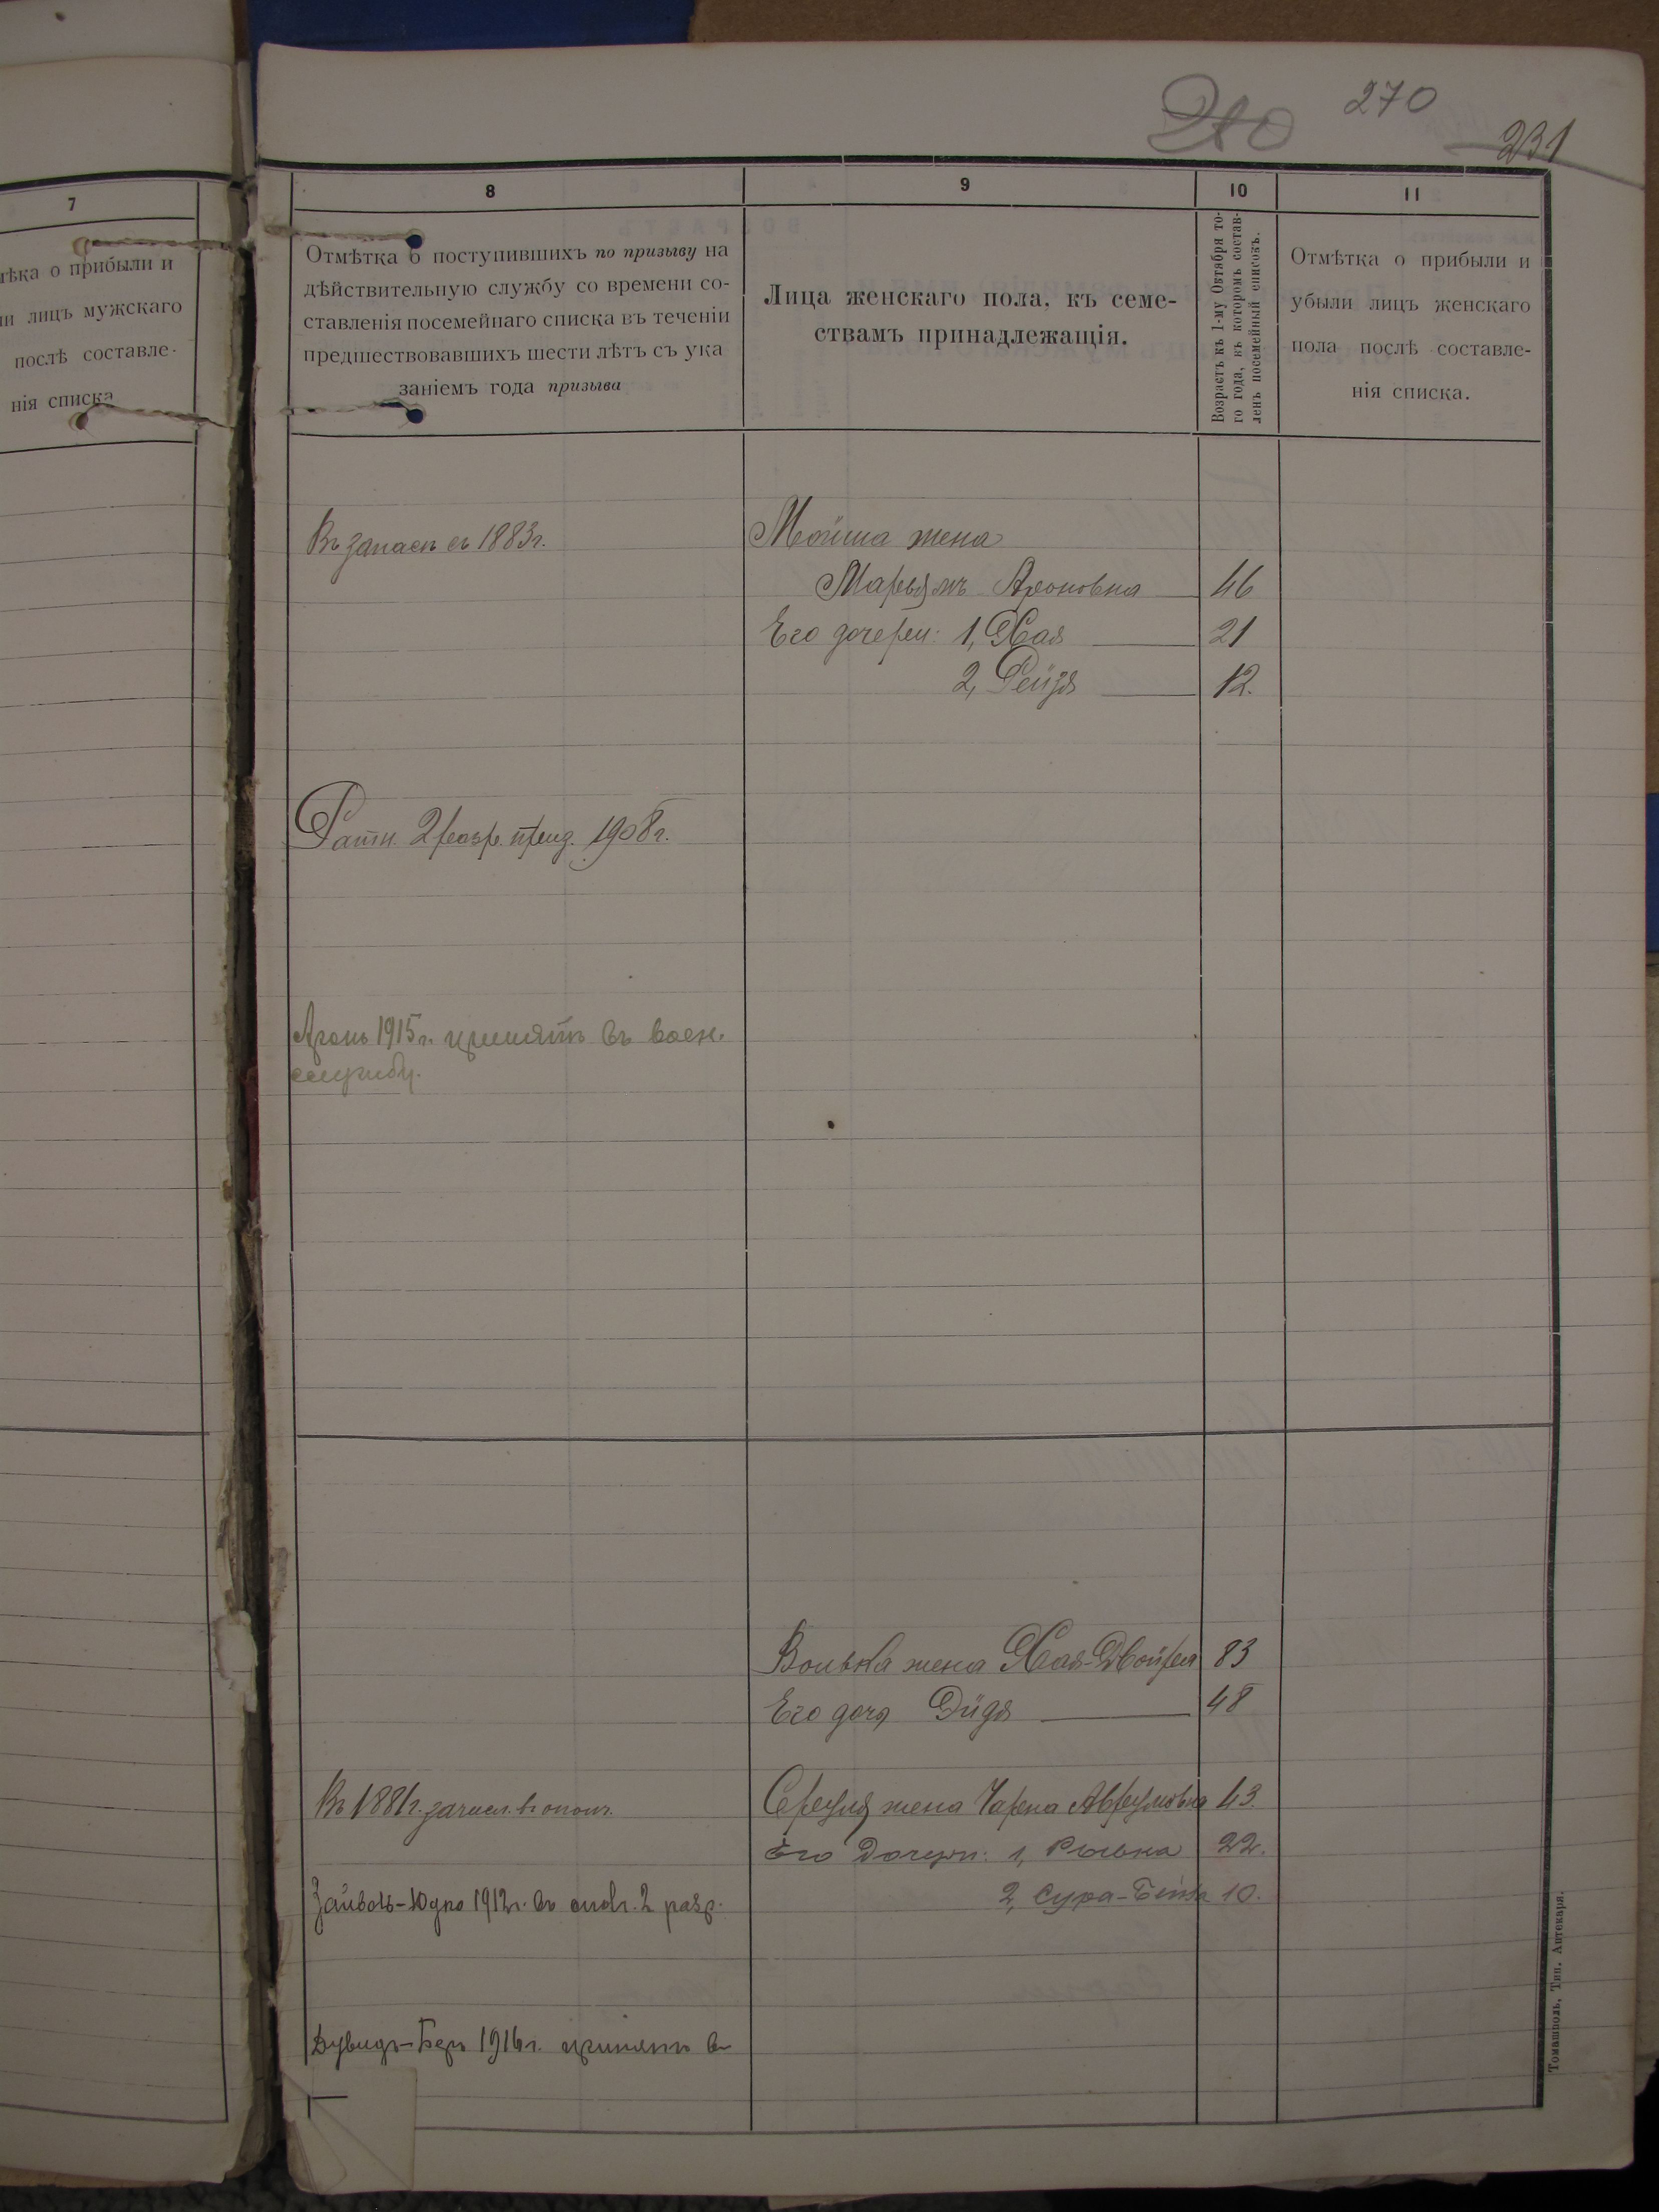 210
270
231
7
8
9
10
11
ѣка о прибыли и
и лицъ мужскаго
послѣ составле-
нія списка
Отмѣтка о поступившихъ по призыву на
дѣйствительную службу со времени со-
ставленія посемейнаго списка въ теченіи
предшествовавшихъ шести лѣтъ съ ука
заніемъ года призыва
Лица женскаго пола, къ семе-
ствамъ принадлежащія.
Возрастъ къ 1-му Октября то-
го года, въ которомъ состав-
ленъ посемейный списокъ.
Отмѣтка о прибыли и
убыли лицъ женскаго
пола послѣ составле-
нія списка.
Въ запасъ съ 1883г.
Мойша жена
Марьямъ Ароновна 46
Его дочери: 1, Хая 21
2, Рейзя 12.
Ратн. 2 разр. приз. 1908г.
Аронъ 1915г. принятъ въ воен.
службу.
Волька жена Хая-Двойра 83
Его дочь 48
Въ 1881г. зачисл. в. ополч.
Сруля жена Чарна Аврумовна 43.
Его дочери: 1, Рывка 22.
2, Сура- 10.
Зайволь-Юдко 1912г. въ ополч. 2 разр.
Дувидъ-Беръ 1916г. принятъ в-
Томашполь, Тип. Аптекаря.